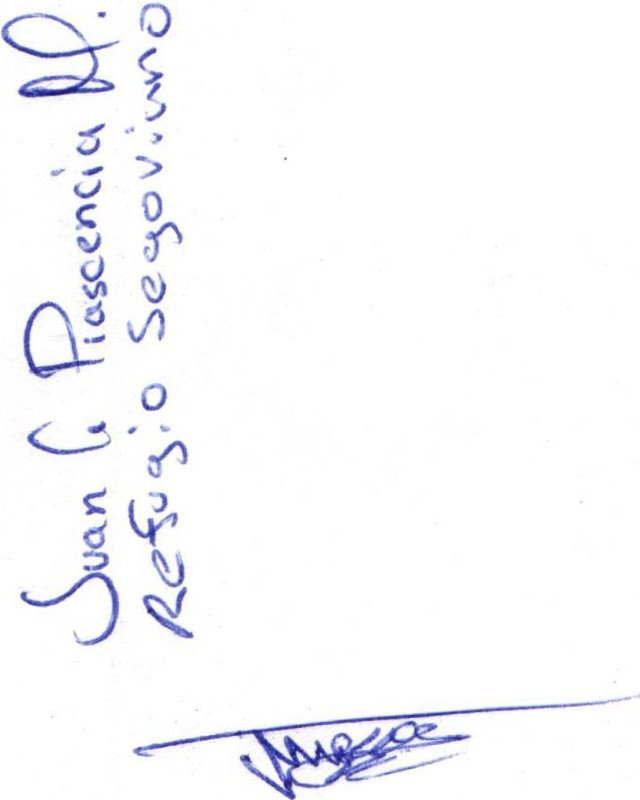 Juan C. Plascencia D.
Refugio Segoviano